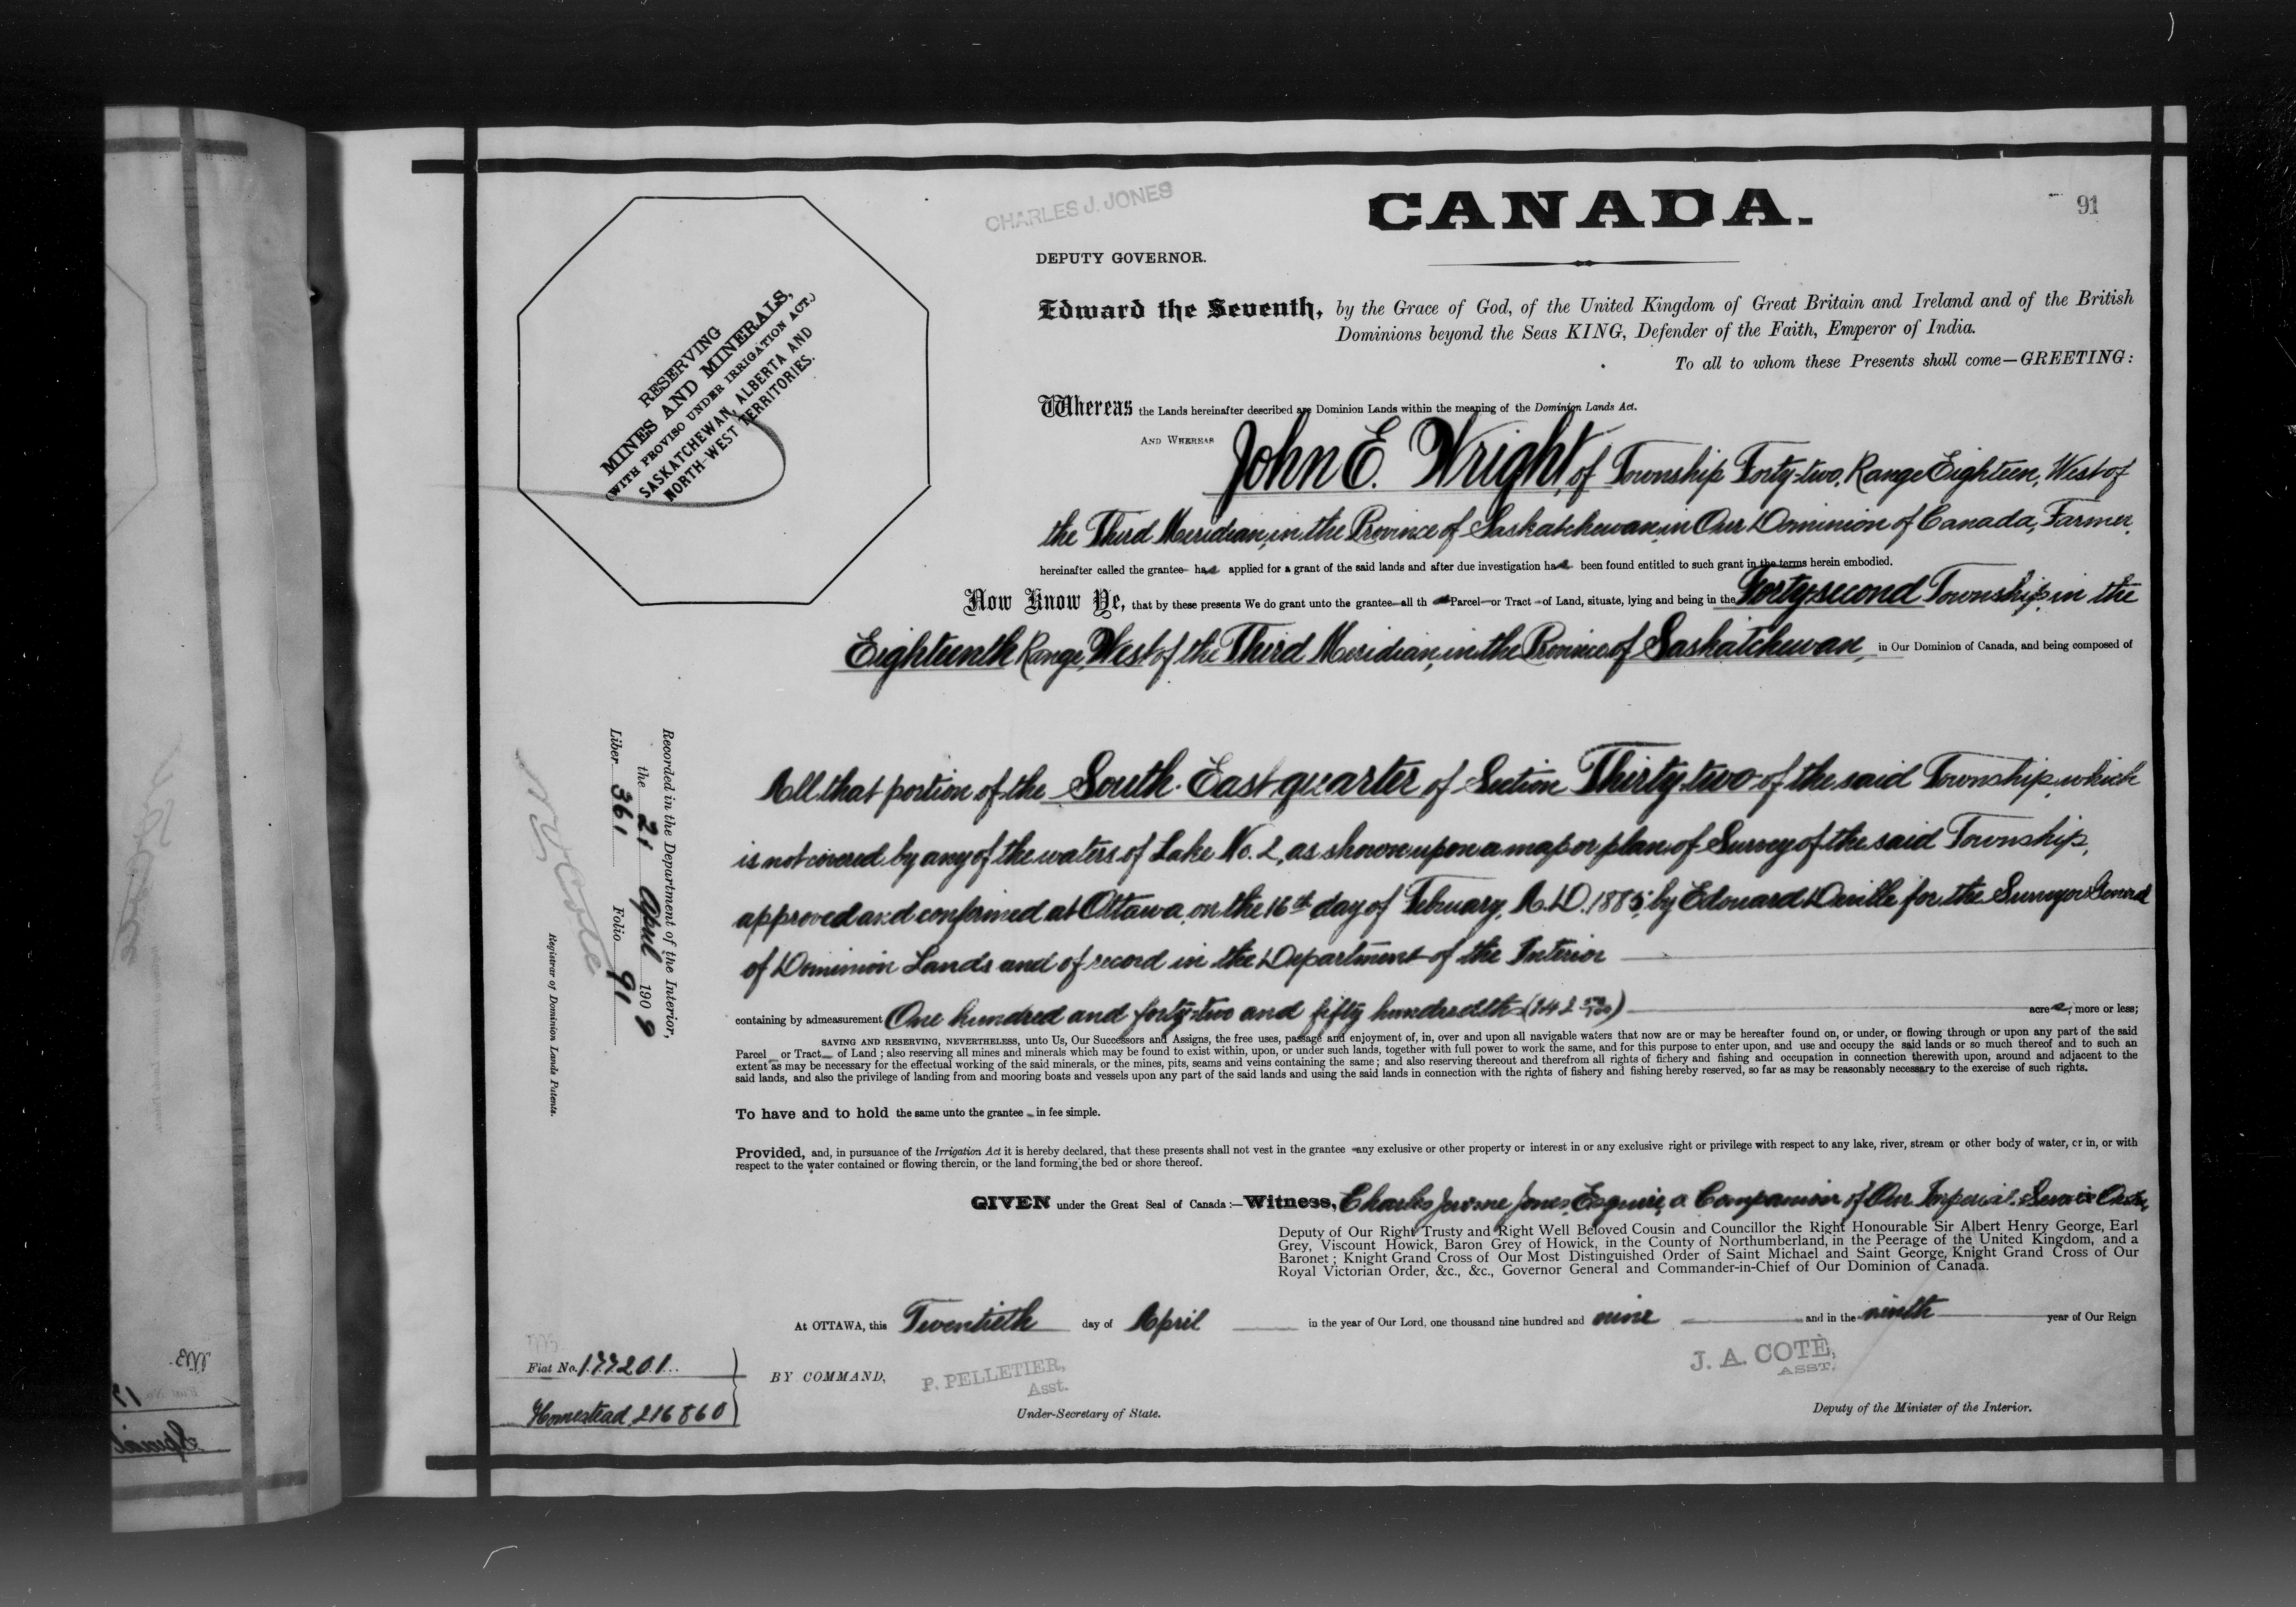 CHARLES J. JONES
CANADA.
91
DEPUTY GOVERNOR.
Edward the Seventh, by the Grace of God, of the United Kingdom of Great Britain and Ireland and of the British
Dominions beyond the Seas KING, Defender of the Faith, Emperor of India.
To all to whom these Presents shall come—GREETING:
RESERVING
MINES AND MINERALS,
(WITH PROVISO UNDER IRRIGATION ACT.)
SASKATCHEWAN, ALBERTA AND
NORTH-WEST TERRITORIES.
Whereas the Lands hereinafter described are Dominion Lands within the meaning of the Dominion Lands Act.
AND WHEREAS John E. Wright, of Township Forty-two, Range Eighteen, West of
the Third Meridian, in the Province of Saskatchewan, in Our Dominion of Canada, Farmer,
hereinafter called the grantee has applied for a grant of the said lands and after due investigation has been found entitled to such grant in the terms herein embodied.
Now Know Ye, that by these presents We do grant unto the grantee all th at Parcel or Tract of Land, situate, lying and being in the Forty-second Township, in the
Eighteenth Range, West of the Third Meridian, in the Province of Saskatchewan, in Our Dominion of Canada, and being composed of
All that portion of the South East quarter of Section Thirty-two of the said Township, which
is not covered by any of the waters of Lake No. 2, as shown upon a map or plan of Survey of the said Township,
approved and confirmed at Ottawa, on the 16th day of February, A.D. 1885, by Edouard Deville for the Surveyor General
of Dominion Lands and of record in the Department of the Interior
containing by admeasurement One hundred and forty-two and fifty hundredth (142 50/100) acres, more or less;
SAVING AND RESERVING, NEVERTHELESS, unto Us, Our Successors and Assigns, the free uses, passage and enjoyment of, in, over and upon all navigable waters that now are or may be hereafter found on, or under, or flowing through or upon any part of the said
Parcel or Tract of Land; also reserving all mines and minerals which may be found to exist within, upon, or under such lands, together with full power to work the same, and for this purpose to enter upon, and use and occupy the said lands or so much thereof and to such an
extent as may be necessary for the effectual working of the said minerals, or the mines, pits, seams and veins containing the same; and also reserving thereout and therefrom all rights of fishery and fishing and occupation in connection therewith upon, around and adjacent to the
said lands, and also the privilege of landing from and mooring boats and vessels upon any part of the said lands and using the said lands in connection with the rights of fishery and fishing hereby reserved, so far as may be reasonably necessary to the exercise of such rights.
To have and to hold the same unto the grantee in fee simple.
Provided, and, in pursuance of the Irrigation Act it is hereby declared, that these presents shall not vest in the grantee any exclusive or other property or interest in or any exclusive right or privilege with respect to any lake, river, stream or other body of water, or in, or with
respect to the water contained or flowing therein, or the land forming the bed or shore thereof.
GIVEN under the Great Seal of Canada:—Witness, Charles Jerome Jones, Esquire, a Companion of Our Imperial Service Order,
Deputy of Our Right Trusty and Right Well Beloved Cousin and Councillor the Right Honourable Sir Albert Henry George, Earl
Grey, Viscount Howick, Baron Grey of Howick, in the County of Northumberland, in the Peerage of the United Kingdom, and a
Baronet; Knight Grand Cross of Our Most Distinguished Order of Saint Michael and Saint George, Knight Grand Cross of Our
Royal Victorian Order, &c., &c., Governor General and Commander-in-Chief of Our Dominion of Canada.
At OTTAWA, this Twentieth day of April in the year of Our Lord, one thousand nine hundred and nine and in the ninth year of Our Reign
BY COMMAND,
P. PELLETIER,
Asst.
Under-Secretary of State.
J. A. COTÈ,
ASST.
Deputy of the Minister of the Interior.
Recorded in the Department of the Interior,
the 21 April 1909
Liber 361 Folio 91
N. O. Coté
Registrar of Dominion Lands Patents.
Fiat No. 177201
Homestead 216860